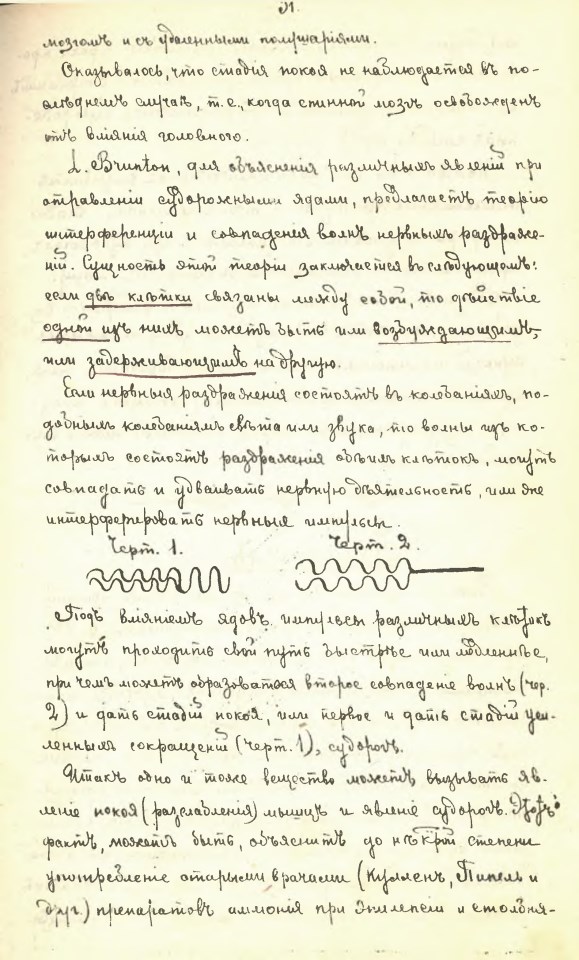 31.
мозгомъ и съ удаленными полушаріями.
Оказывалось, что стадія покоя не наблюдается въ по-
слѣднемъ случаѣ, т.е., когда спинной мозгъ освобожденъ
отъ вліянія головного.
L. Brunton, для объясненія различныхъ явленій при
отравленіи судорожными ядами, предлагаетъ теорію
интерференціи и совпаденія волнъ нервныхъ раздраже-
ній. Сущность этой теоріи заключается въ слѣдующемъ:
если двѣ клѣтки связаны между собой, то дѣйствіе
одной изъ нихъ можетъ быть или возбуждающимъ,
или задерживающимъ на другую.
Если нервныя раздраженія состоятъ въ колебаніяхъ, по-
добныхъ колебаніямъ свѣта или звука, то волны изъ ко-
торыхъ состоятъ раздраженія обѣихъ клѣтокъ, могутъ
совпадать и удваивать нервную дѣятельность, или же
интерферировать нервныя импульсы.
Черт. 1. Черт. 2.
Подъ вліяніемъ ядовъ импульсы различныхъ клѣтокъ
могутъ проходить свой путь быстрѣе или медленнѣе,
при чемъ можетъ образоваться второе совпаденіе волнъ (чер.
2) и дать стадій покоя, или первое и дать стадій уси-
ленныхъ сокращеній (черт. 1), судорогъ.
Итакъ одно и тоже вещество можетъ вызывать яв-
леніе покоя (разслабленія) мышцъ и явленіе судорогъ. Этотъ
фактъ, можетъ быть, объяснитъ до нѣкот͞ой степени
употребленіе старыми врачами (Кулленъ, Пипель и
друг.) препаратовъ аммонія при эпилепсіи и столбня-